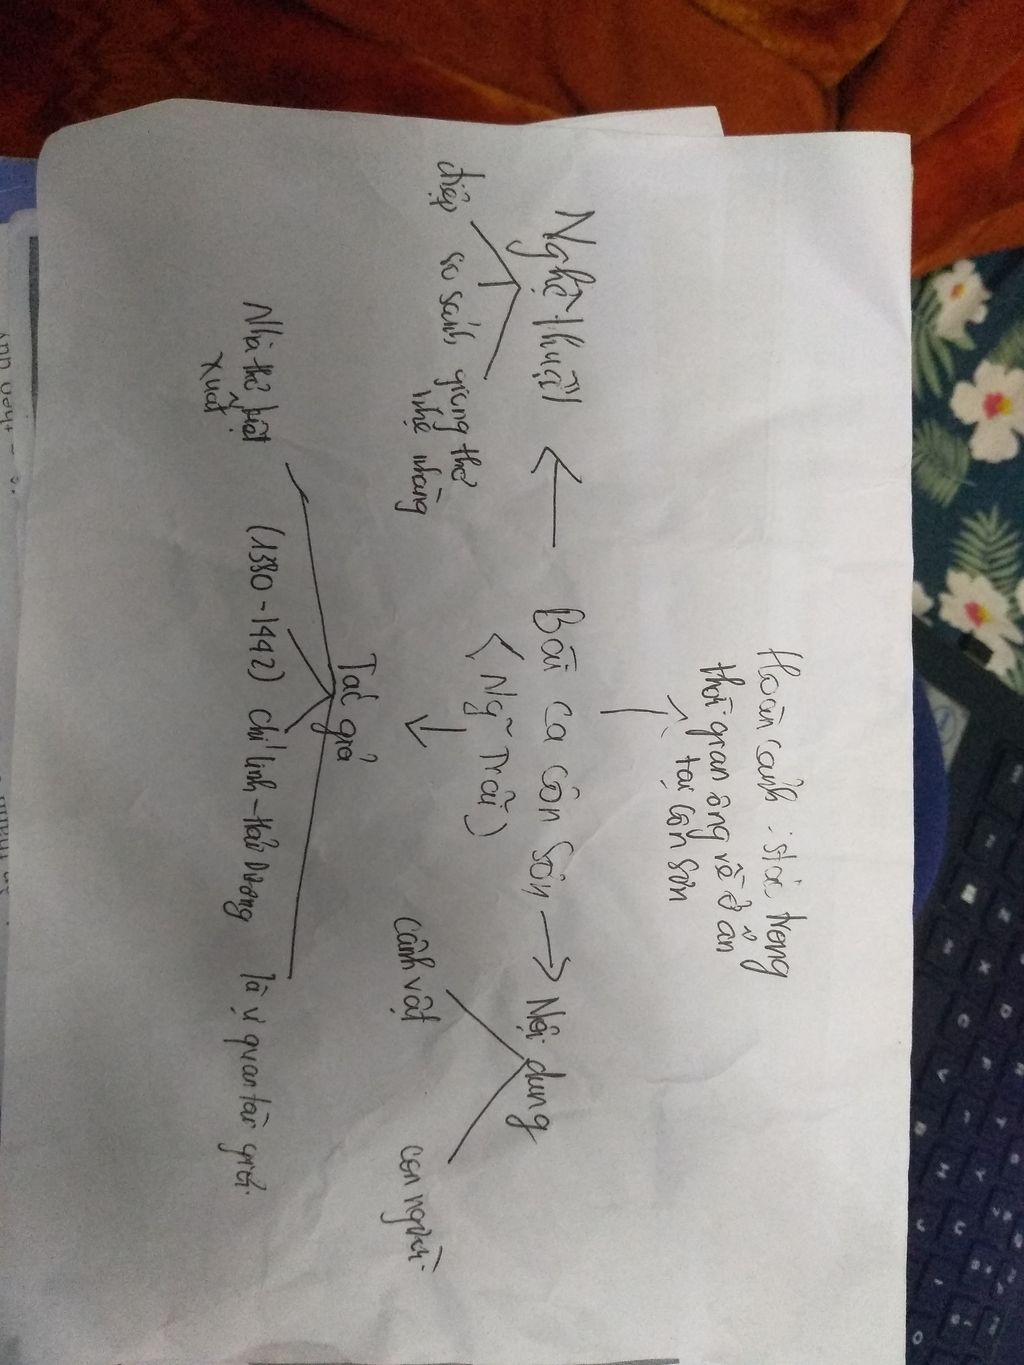 Hoàn cảnh: stác trong
thời gian ông về ở ẩn
tại Côn Sơn
Nghệ thuật
Bài ca Côn Sơn
(Ng~ Trãi)
Nội dung
điệp
so sánh
giọng thơ
nhẹ nhàng
cảnh vật
con người
Tác giả
Nhà thơ kiệt
xuất
(1380-1442)
chí linh - Hải Dương
là vị quan tài giỏi